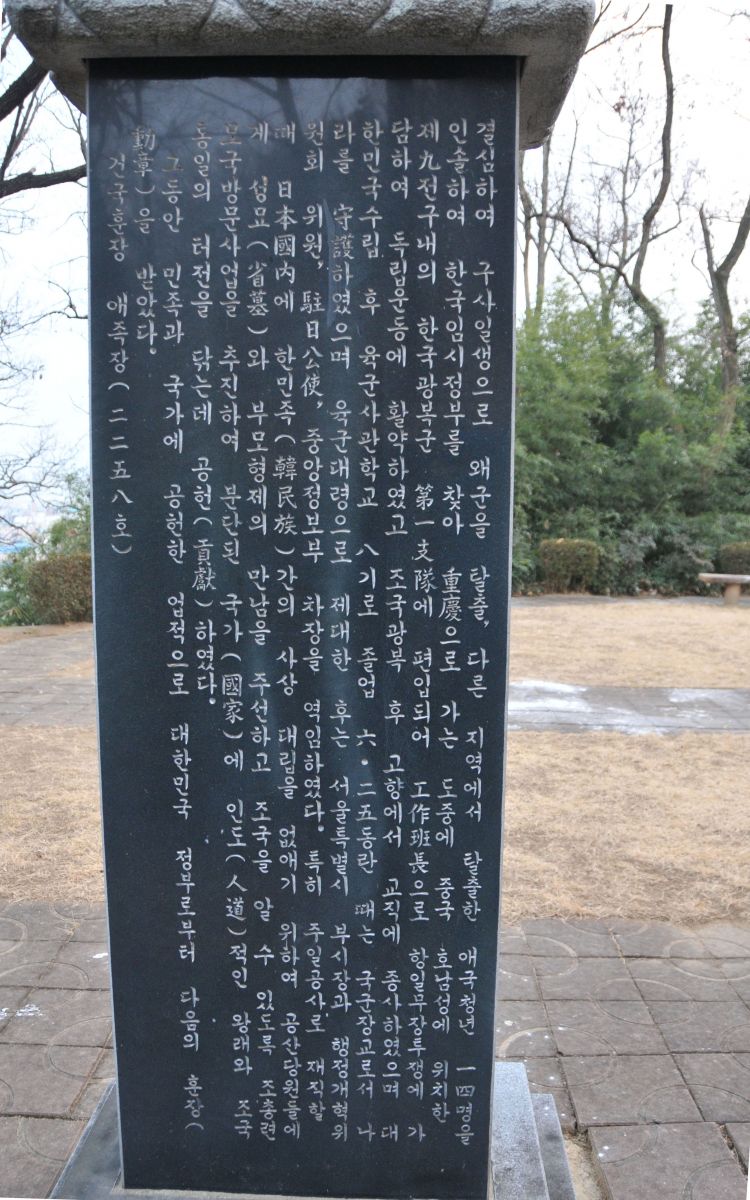 결심하여 구사일생으로 왜군을 탈출, 다른 지역에서 탈출한 애국청년 一四명을
인솔하여 한국임시정부를 찾아 重慶으로 가는 도중에 중국 호남성에 위치한
제九전구내의 한국광복군 第一支隊에 편입되어 工作班長으로 항일무장투쟁에 가
담하여 독립운동에 활약하였고 조국광복 후 고향에서 교직에 종사하였으며 대
한민국수립 후 육군사관학교 八기로 졸업 六·二五동란 때는 국군장교로서 나
라를 守護하였으며 육군대령으로 제대한 후는 서울특별시 부시장과 행정개혁위
원회 위원, 駐日公使, 중앙정보부 차장을 역임하였다. 특히 주일공사로 재직할
때 日本國內에 한민족(韓民族)간의 사상 대립을 없애기 위하여 공산당원들에
게 성묘(省墓)와 부모형제의 만남을 주선하고 조국을 알 수 있도록 조총련
모국방문사업을 추진하여 분단된 국가(國家)에 인도(人道)적인 왕래와 조국
통일의 터전을 닦는데 공헌(貢獻)하였다.
그동안 민족과 국가에 공헌한 업적으로 대한민국 정부로부터 다음의 훈장(
勳章)을 받았다.
건국훈장 애족장(二二五八호)